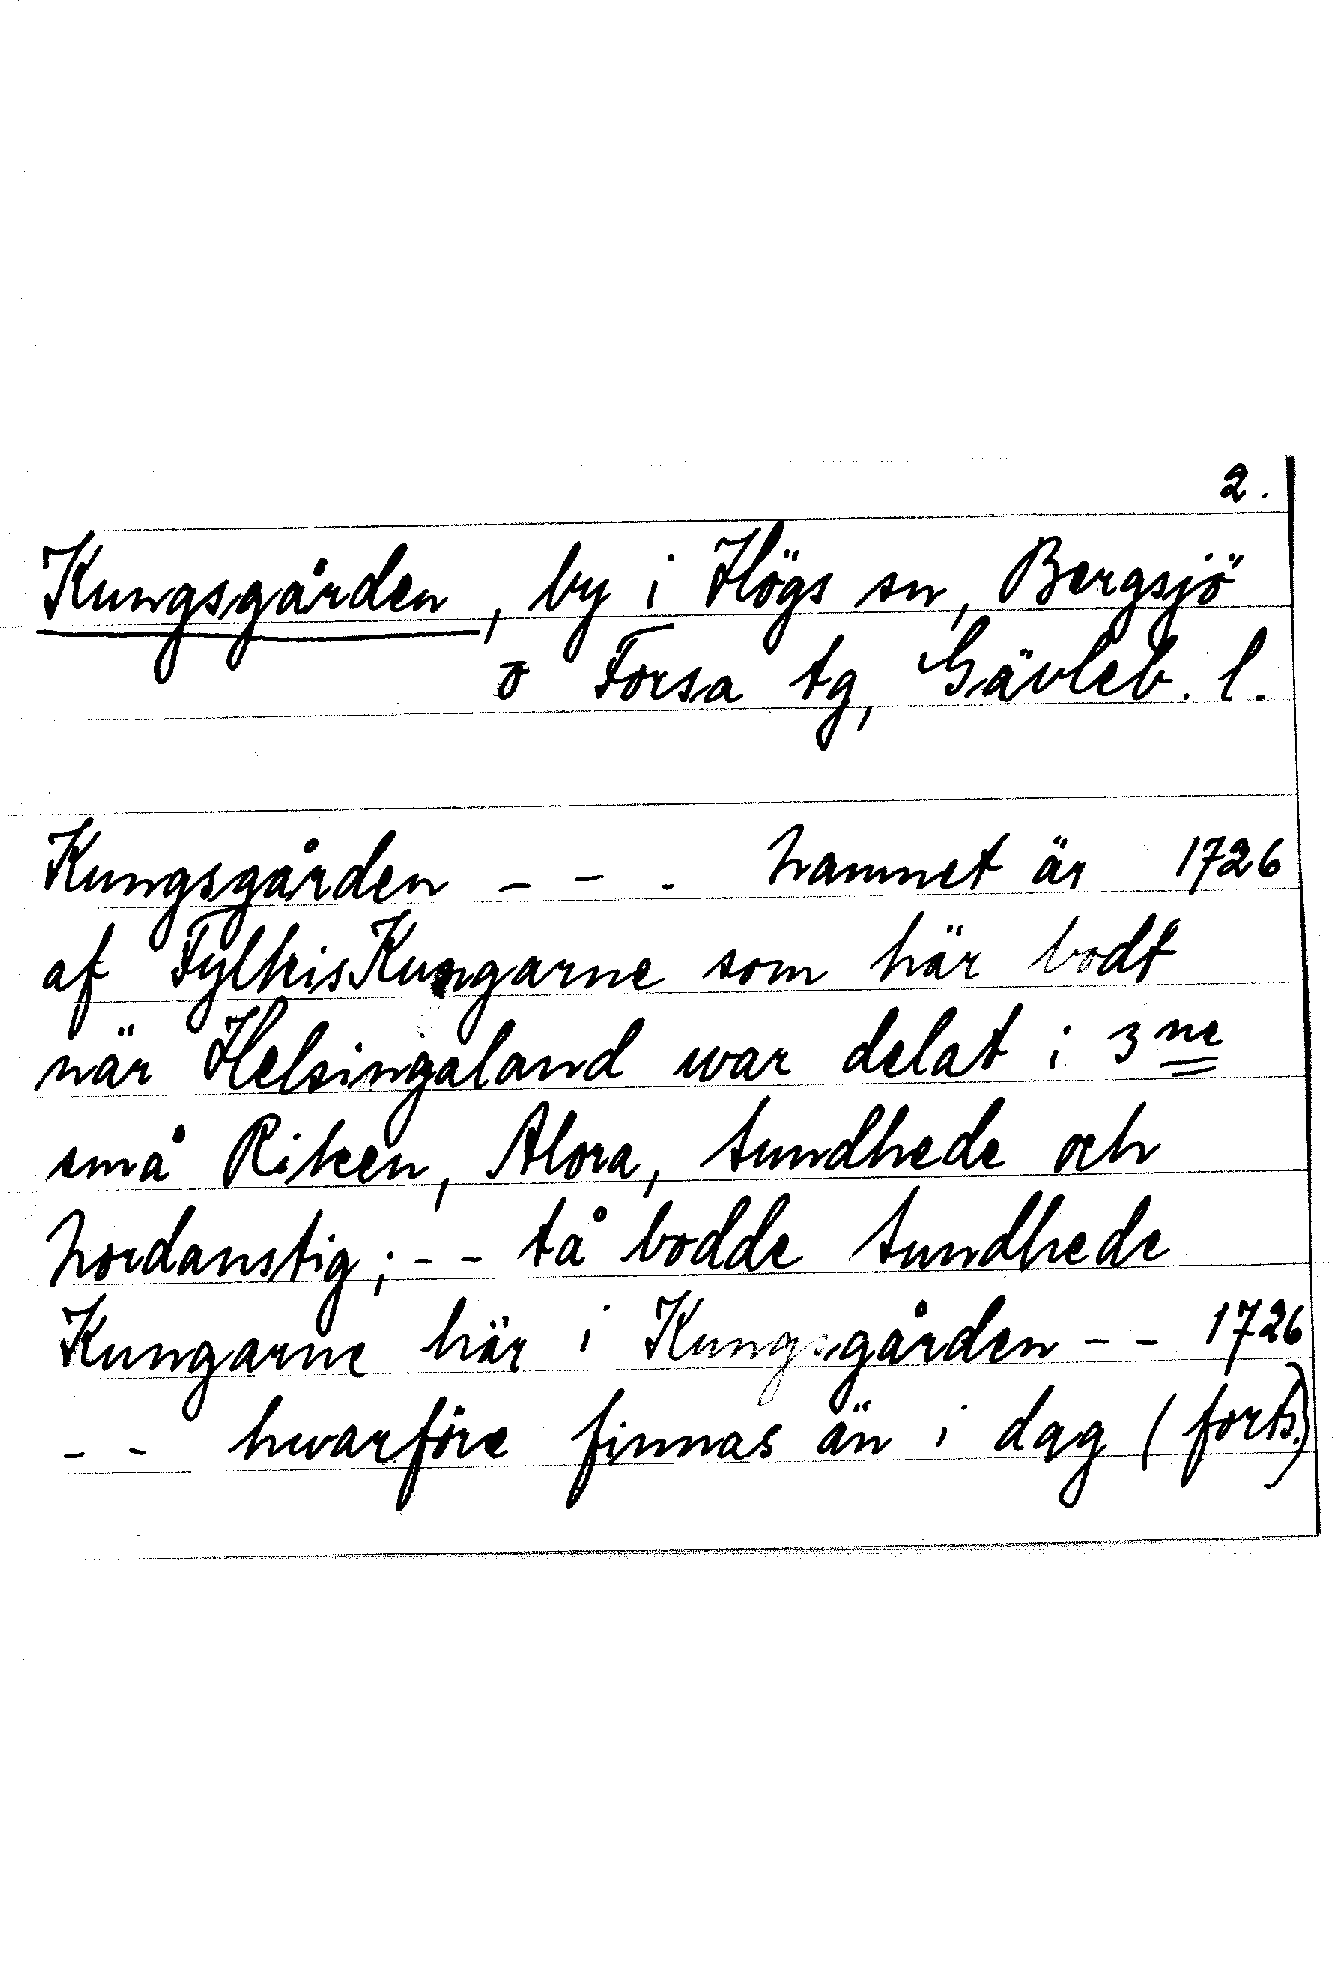 2.
Kungsgården, by i Högs sn, Bergsjö
o Forsa tg, Gävleb. l.
Kungsgården - - - Namnet är 1726
af FylkisKungarne som här bodt
när Helsingaland war delat i 3ne
små Riken, Alora, Sundhede och
Nordanstig; - - tå bodde Sundhede
Kungarne här i Kungsgården - - 1726
- - hwarföre finnas än i dag (forts.)